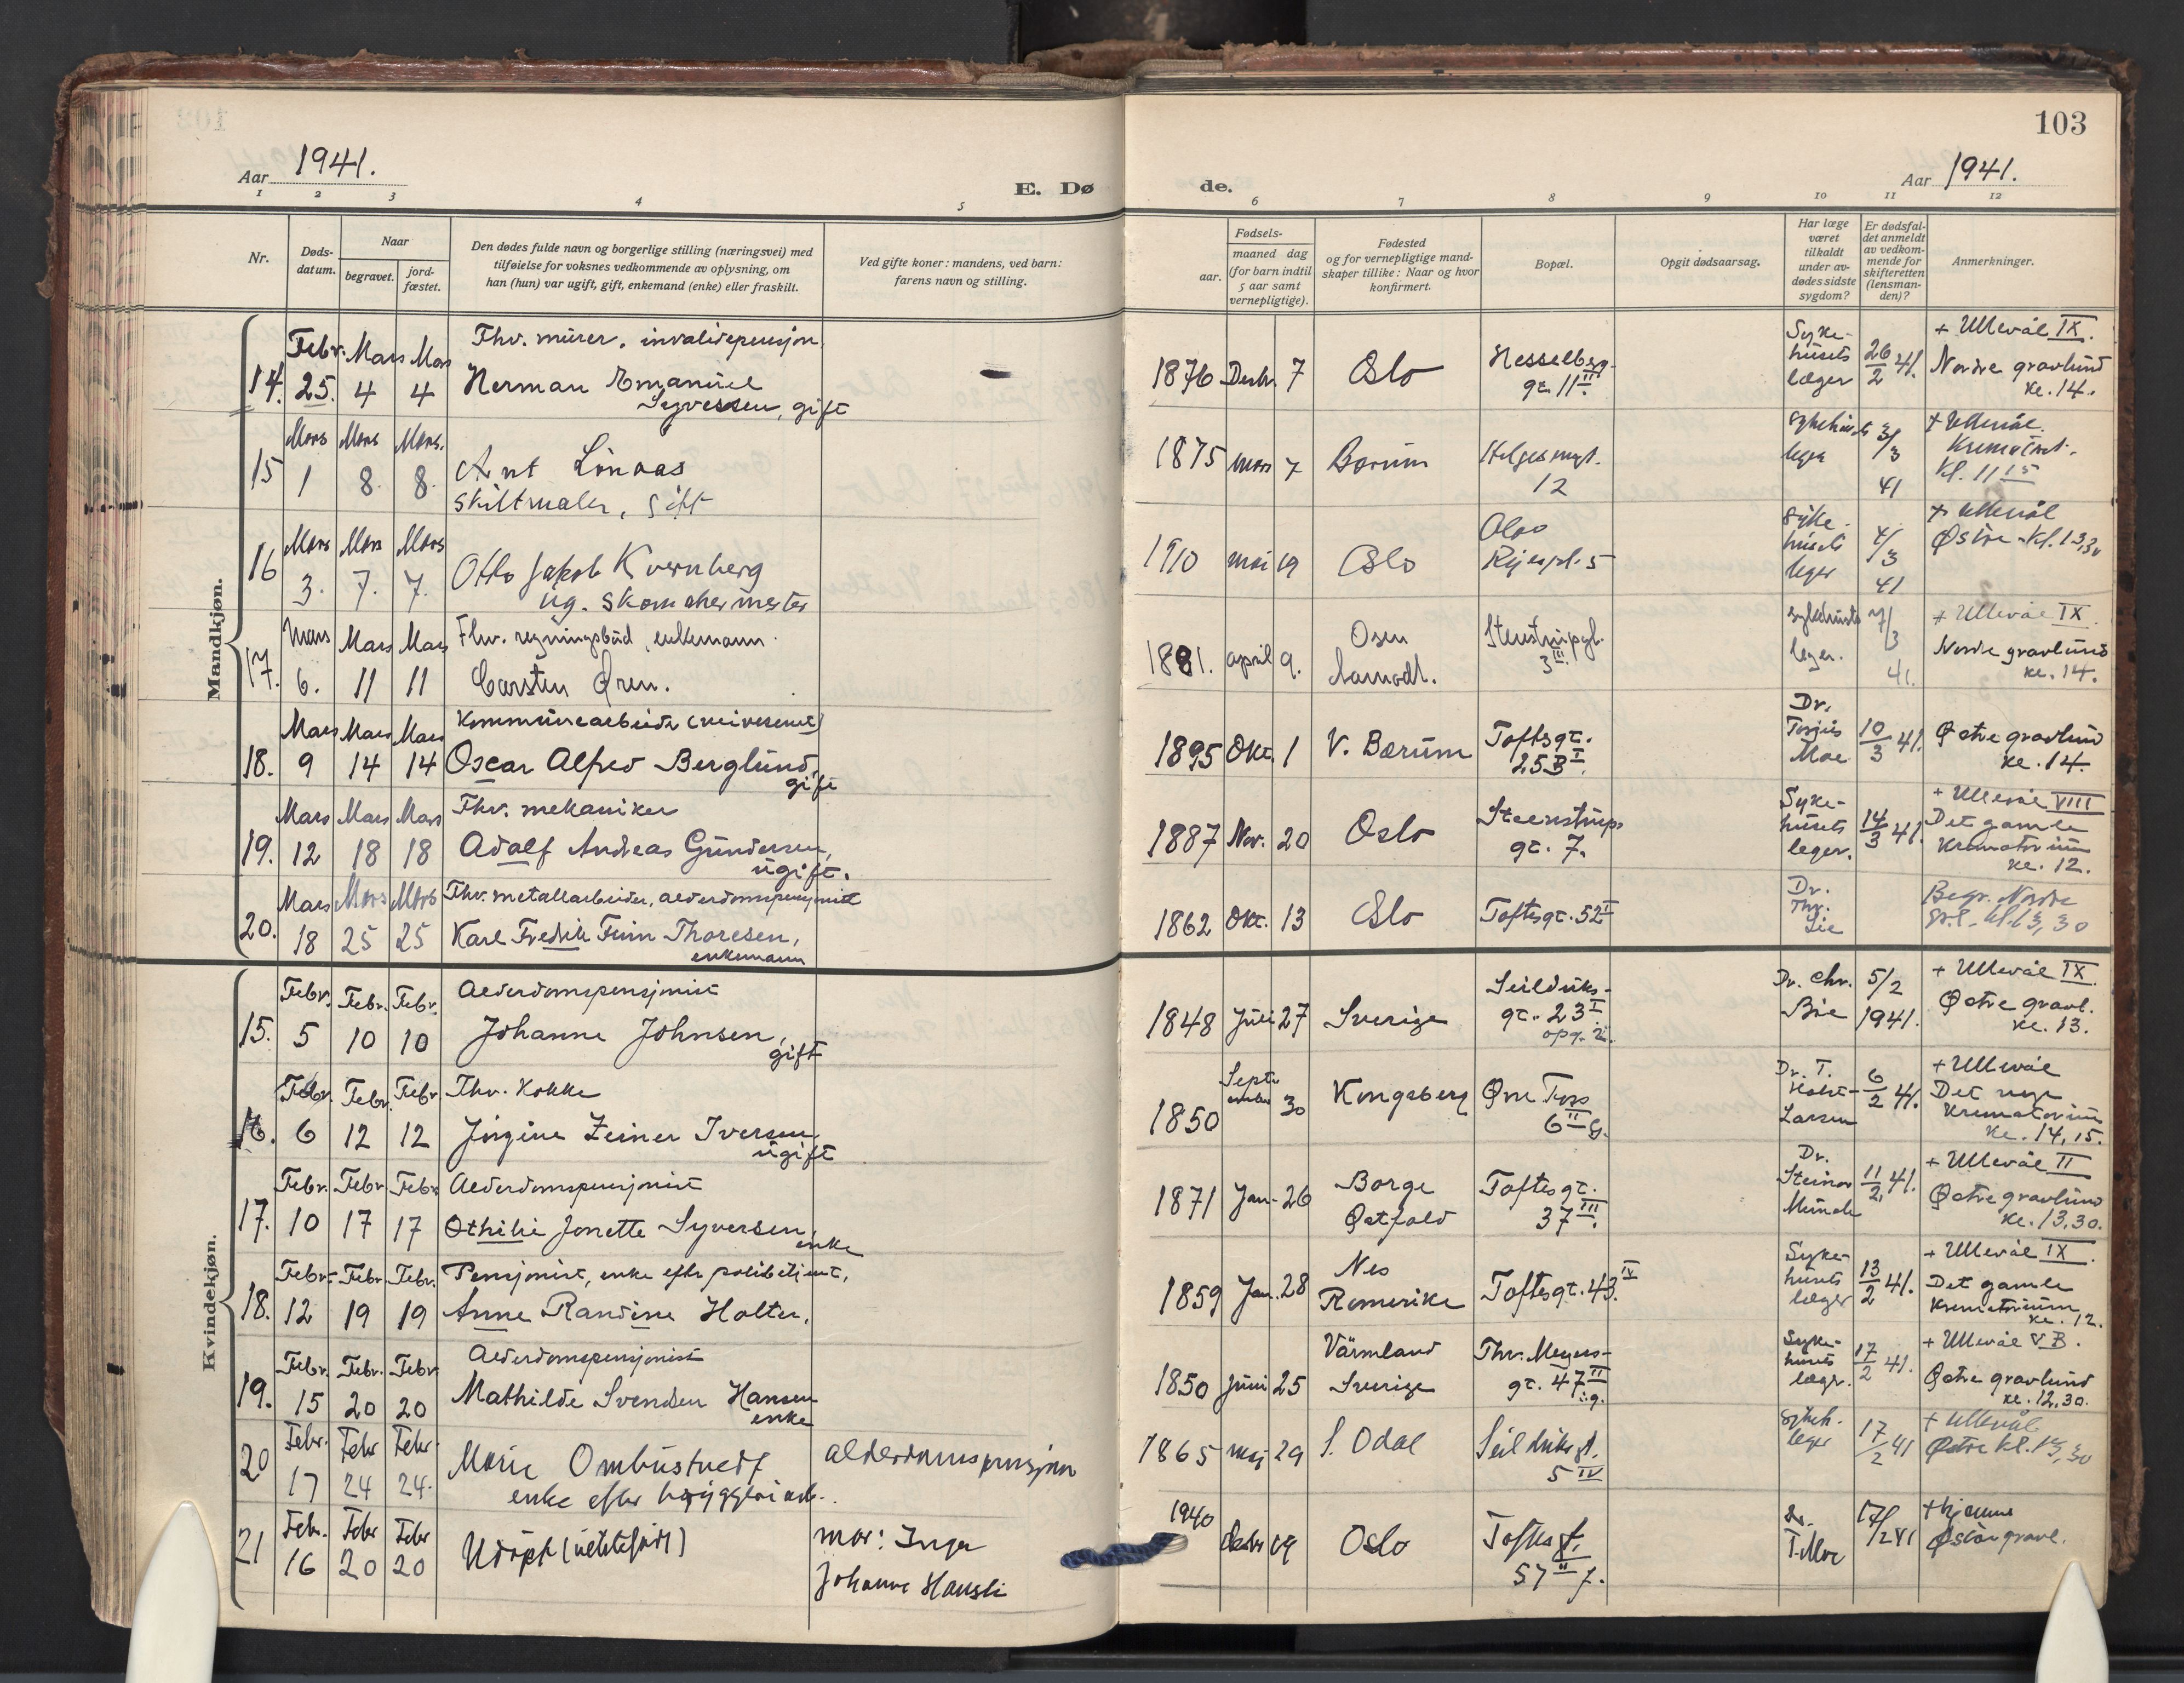 103
Aar 1941.
E. Dø de.
Aar 1941.
1 2 3 4 5 6 7 8 9 10 11 12
Nr.
Døds-datum.
Naar
begravet.
jord-fæstet.
Den dødes fulde navn og borgerlige stilling (næringsvei) med
tilføielse for voksnes vedkommende av oplysning, om
han (hun) var ugift, gift, enkemand (enke) eller fraskilt.
Ved gifte koner: mandens, ved barn:
farens navn og stilling.
Fødsels-
aar.
maaned dag
(for barn indtil
5 aar samt
vernepligtige).
Fødested
og for vernepligtige mand-
skaper tillike: Naar og hvor
konfirmert.
Bopæl.
Opgit dødsaarsag.
Har læge
været
tilkaldt
under av-
dødes sidste
sygdom?
Er dødsfal-
det anmeldt
av vedkom-
mende for
skifteretten
(lensman-
den)?
Anmerkninger.
Mandkjøn.
14. Febr. 25. Mars 4 Mars 4
Fhv. murer, invalidepensjon
Herman Emanuel
Syvertsen, gift
— 1876 Desbr. 7 Oslo
Hesselberg-
gt. 11 II.
Syke-
husets
læger
26/2 41.
+ Ullevål IX.
Nordre gravlund
kl. 14.
15 Mars 1 Mars 8. Mars. 8.
Arnt Linaas
skiltmaler, gift
1875 mars 7 Bærum
Helgesensgt.
12
sykehusets
lege
3/3
41
+ Ullevål.
Krematoriet.
Kl. 11 15
16 Mars 3. Mars 7. Mars 7.
Otto Jakob Kvernberg
ug. skomakermester
1910 mai 19 Oslo
Oslo
5
syke-
husets
leger
4/3
41
+ Ullevål
Østre - Kl. 13,30
17. Mars 6. Mars 11 Mars 11
Fhv. regningsbud, enkemann.
Carsten Øren.
1881. april 9.
Osen
Aamodt.
Stenstrupgt.
3 III.
sykehusets
leger.
7/3
41.
+ Ullevål IX.
Nordre gravlund
kl. 14.
18. Mars 9 Mars 14 Mars 14
Kommunearbeider (veivesenet)
Oscar Alfred Berglund,
gift
1895 Okt. 1 V. Bærum
Toftesgt.
25B I.
Dr.
Torgus
Moe
10/3 41.
Østre gravlund
kl. 14.
19. Mars 12 Mars 18 Mars 18
Fhv. mekaniker
Adolf Andreas Gundersen,
ugift.
1887 Nov. 20 Oslo
Steenstrups
gt. 7.
Syke-
husets
leger.
14/3 41.
+ Ullevål VIII
Det gamle
Krematorium
kl. 12.
20. Mars 18 Mars 25 Mars 25
Fhv. metallarbeider, alderdomspensjonist
Karl Fredrik Finn Thoresen,
enkemann
1862 Okt. 13 Oslo
Toftesgt. 52 I
Dr.
Thv.
Lie
Begr. Nordre
gr.l. kl. 13,30
Kvindekjøn.
15. Febr. 5 Febr. 10 Febr. 10
Alderdomspensjonist
Johanne Johnsen,
gift
1848 Juli 27 Sverige
Seilduks-
gt. 23 I
opg. 2.
Dr. Chr.
Bie
5/2
1941.
+ Ullevål IX
Østre gravl.
kl. 13.
16. Febr. 6 Febr. 12 Febr 12
Fhv. kokke
Jørgine Zeiner Iversen,
ugift
1850 September 30 Kongsberg
Øvre Foss
6 II g.
Dr. T.
Holst-
Larsen
6/2 41.
+ Ullevål
Det nye
krematorium
kl. 14,15.
17. Febr. 10 Febr. 17 Febr. 17
Alderdomspensjonist
Othilie Jonette Syversen,
enke
1871 Jan. 26
Borge
Østfold
Toftesgt.
37 III.
Dr.
Steinar
Munch
11/2 41.
+ Ullevål II
Østre gravlund
kl. 13,30.
18. Febr. 12 Febr. 19 Febr. 19
Pensjonist, enke efter politibetjent,
Anne Randine Holter.
1859 Jan. 28
Nes
Romerike
Toftesgt. 43 IV.
Syke-
husets
læger
13/2 41.
+ Ullevål IX.
Det gamle
Krematorium,
kl. 12.
19. Febr. 15 Febr. 20 Febr 20
Alderdomspensjonist
Mathilde Svendsen Hansen
enke
1850 Juni 25
Värmland
Sverige
Thv. Meyers-
gt. 47 II
i.g.
Syke-
husets
læger.
17/2 41.
+ Ullevål V B.
Østre gravlund
kl. 12,30.
20 Febr. 17 Febr 24 Febr. 24.
Marie Ombustvedt
enke efter bryggeriarb.
alderdomspensjon
1865 mai 29 S. Odal
Seilduksgt.
5 IV
sykeh.
leger
17/2 41
+ Ullevål
Østre kl. 13,30
21 Febr. 16 Febr 20 Febr 20
Udøpt (uektefødt)
mor: Inga
Johanne Hausli
1940 Desbr 19 Oslo
Toftesgt.
57 II
Dr.
T. Moe
17/2 41
+ hjemme
Østre gravl.